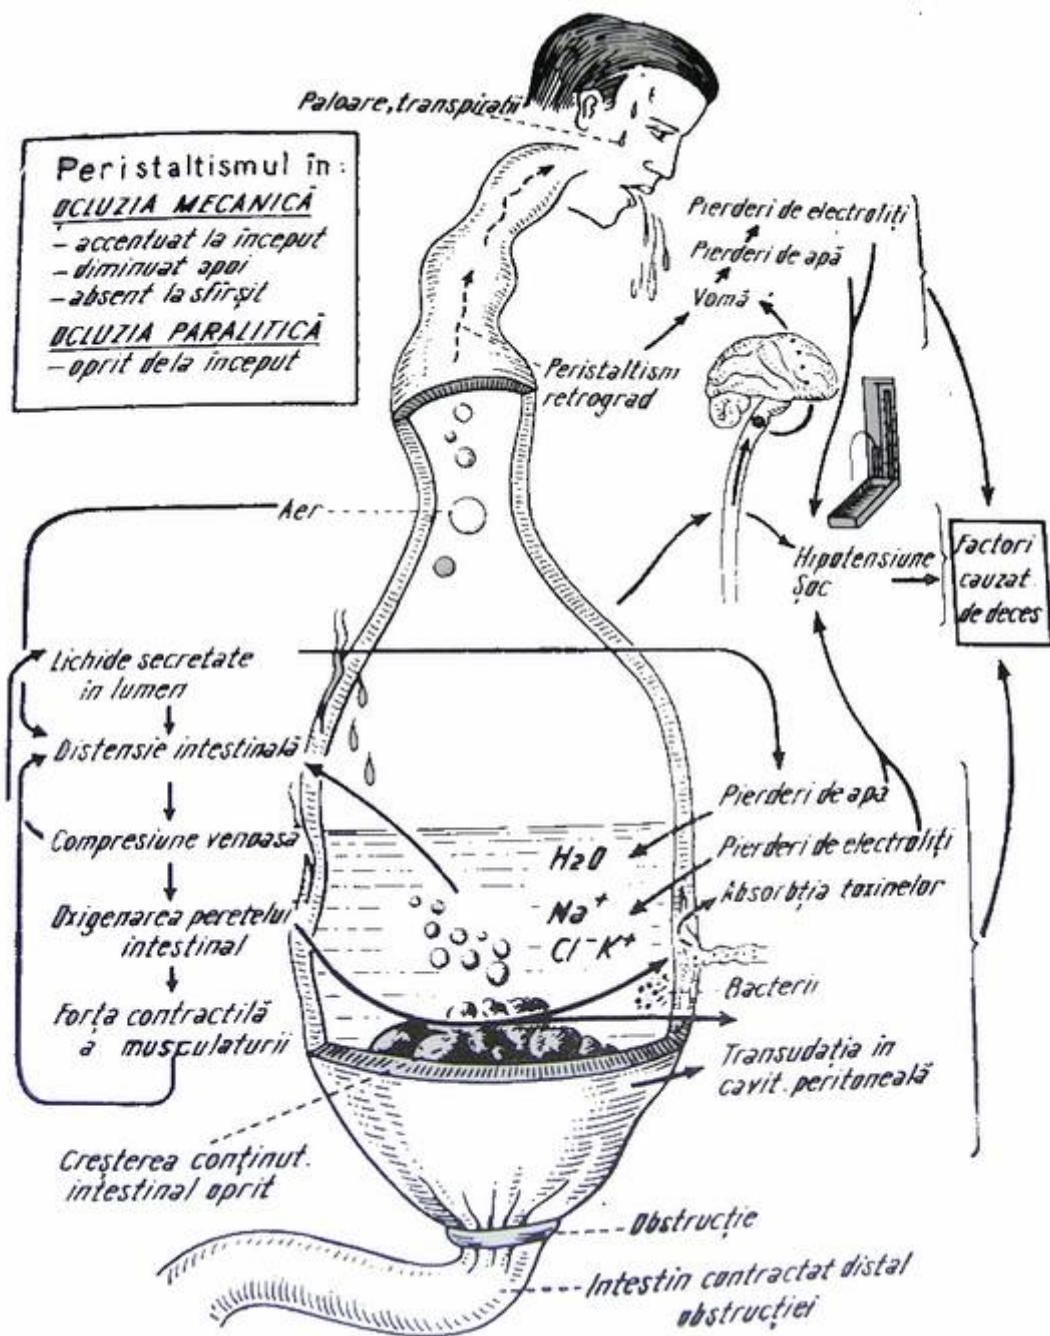 Paloare, transpirații
Peristaltismul în:
OCLUZIA MECANICĂ
- accentuat la început
- diminuat apoi
- absent la sfîrșit
OCLUZIA PARALITICĂ
- oprit de la început
Pierderi de electroliți
Pierderi de apă
Vomă
Peristaltism
retrograd
Aer
Hipotensiune
Șoc
Factori
cauzat.
de deces
Lichide secretate
în lumen
Distensie intestinală
Compresiune venoasă
Oxigenarea peretelui
intestinal
Forța contractilă
a musculaturii
H2O
Na+
Cl- K+
Pierderi de apă
Pierderi de electroliți
Absorbția toxinelor
Bacterii
Transudația în
cavit. peritoneală
Creșterea conținut.
intestinal oprit
Obstrucție
Intestin contractat distal
obstrucției